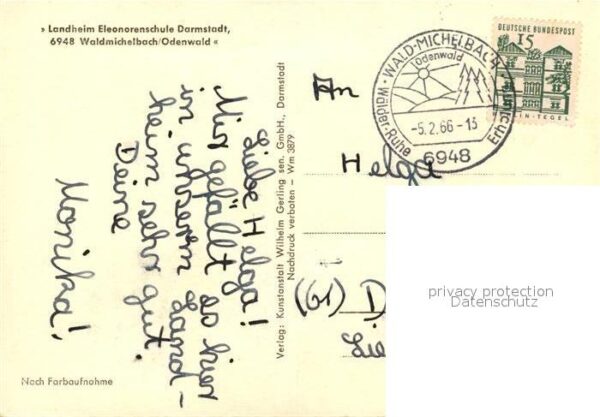 » Landheim Eleonorenschule Darmstadt,
6948 Waldmichelbach/Odenwald «
Liebe Helga!
Mir gefällt es hier
in unserem Land-
heim sehr gut.
Deine
Monika!
Nach Farbaufnahme
Verlag: Kunstanstalt Wilhelm Gerling sen. GmbH., Darmstadt
Nachdruck verboten – Wm 3879
DEUTSCHE BUNDESPOST
15
BERLIN-TEGEL
WALD-MICHELBACH
Odenwald
-5.2.66-13
Wälder·Ruhe
6948
An
Helga
(61) D
privacy protection
Datenschutz